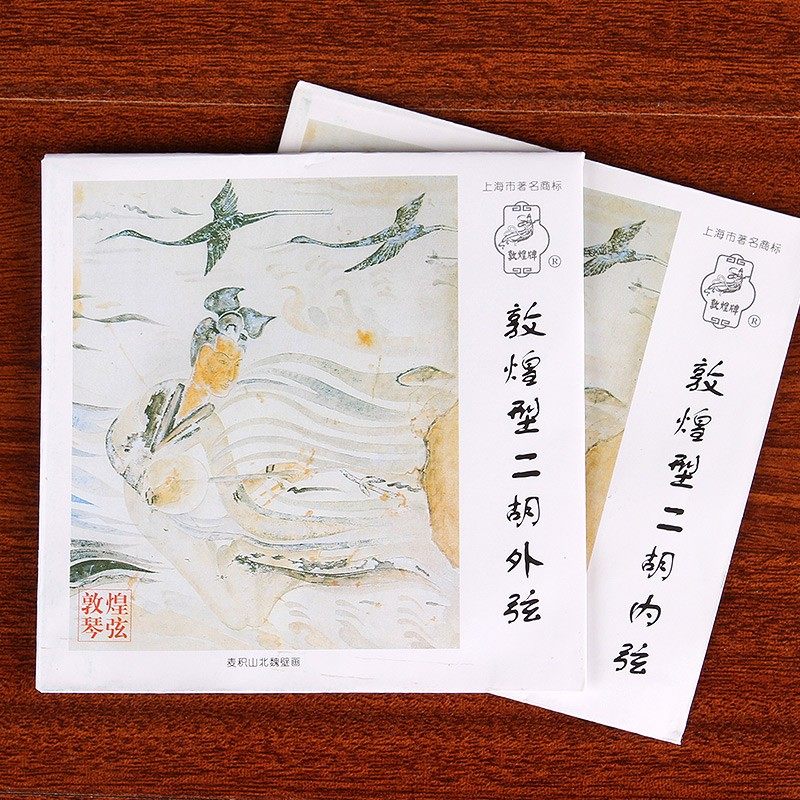 上海市著名商标
敦煌牌
®
敦煌型二胡外弦
敦煌
琴弦
麦积山北魏壁画
上海市著名商标
敦煌牌
®
敦煌型二胡内弦